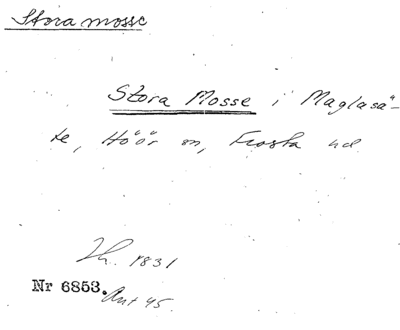 Stora mosse
Stora Mosse i Maglasä-
te, Höör sn, Frosta hd
Th. 1831
Nr 6853.
Ant 45.